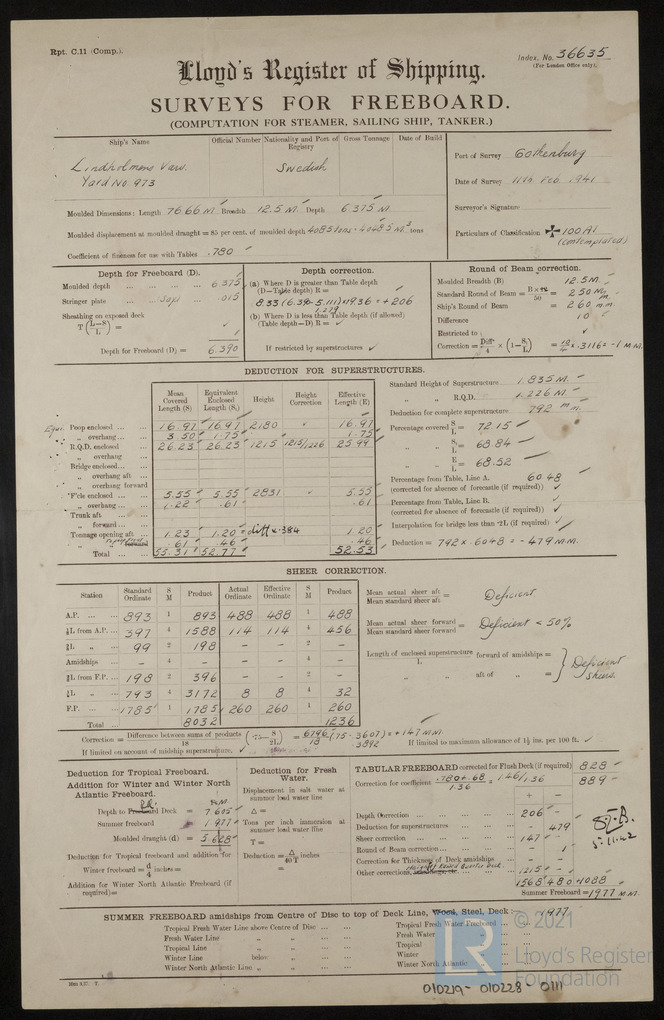 Rpt. C.11 (Comp.).
Index. No. 36635
(For London Office only).
Lloyd's Register of Shipping.
SURVEYS FOR FREEBOARD.
(COMPUTATION FOR STEAMER, SAILING SHIP, TANKER.)
Ship's Name Official Number Nationality and Port of Registry Gross Tonnage Date of Build
Lindholmens Varv. Swedish
Yard No 973
Port of Survey Gothenburg
Date of Survey 11th Feb 1941
Surveyor's Signature
Particulars of Classification ✠100A1
(contemplated)
Moulded Dimensions: Length 76.66 M. Breadth 12.5 M. Depth 6.375 M.
Moulded displacement at moulded draught = 85 per cent. of moulded depth 4085 tons = 4048.5 M.³ tons
Coefficient of fineness for use with Tables .780
Depth for Freeboard (D).
Moulded depth ... ... ... 6.375
Stringer plate ... ... .015
Sheathing on exposed deck
T (L-S/L) =
Depth for Freeboard (D) = 6.390
Depth correction.
(a) Where D is greater than Table depth
(D—Table depth) R =
8.33 (6.390-5.111) × 19.36 = +206
1.279
(b) Where D is less than Table depth (if allowed)
(Table depth—D) R =
If restricted by superstructures
Round of Beam correction.
Moulded Breadth (B) 12.5 M.
Standard Round of Beam = B×12/50 = 250 M.m.
Ship's Round of Beam = 260 m.m.
Difference 10
Restricted to
Correction = Diff/4 × (1-S₁/L) = 10/4 × .3116 = -1 M.M.
DEDUCTION FOR SUPERSTRUCTURES.
Mean Covered Length (S) Equivalent Enclosed Length (S₁) Height Height Correction Effective Length (E)
Equi. Poop enclosed ... ... 16.97 16.97 2180 16.97
„ overhang ... ... 3.50 1.75 1.75
R.Q.D. enclosed ... 26.23 26.23 1215 1215/1226 25.99
„ overhang ...
Bridge enclosed... ...
„ overhang aft ...
„ overhang forward
F'cle enclosed ... ... 5.55 5.55 2831 5.55
„ overhang... ... 1.22 .61 .61
Trunk aft ... ...
„ forward... ...
Tonnage opening aft ... 1.23 1.20 = diff × .384 1.20
„ .61 .46 .46
Total ... ... 55.31 52.77 52.53
Standard Height of Superstructure 1.835 M.
„ „ R.Q.D. 1.226 M.
Deduction for complete superstructure 792 m.m.
Percentage covered S/L = 72.15
„ „ S₁/L = 68.84
„ „ E/L = 68.52
Percentage from Table, Line A. 60.48
(corrected for absence of forecastle (if required))
Percentage from Table, Line B.
(corrected for absence of forecastle (if required))
Interpolation for bridge less than ·2L (if required)
Deduction = 792 × .6048 = -479 M.M.
SHEER CORRECTION.
Station Standard Ordinate S M Product Actual Ordinate Effective Ordinate S M Product
A.P. ... ... 893 1 893 488 488 1 488
⅙L from A.P. ... 397 4 1588 114 114 4 456
⅓L „ ... 99 2 198 - - 2 -
Amidships ... - 4 - - - 4 -
⅓L from F.P. ... 198 2 396 - - 2 -
⅙L „ ... 793 4 3172 8 8 4 32
F.P. ... ... 1785 1 1785 260 260 1 260
Total ... ... 8032 1236
Mean actual sheer aft / Mean standard sheer aft = Deficient.
Mean actual sheer forward / Mean standard sheer forward = Deficient < 50%
Length of enclosed superstructure / L forward of amidships =
„ „ aft of „ = } Deficient Sheers.
Correction = Difference between sums of products / 18 (·75—S/2L) = 6796/18 (.75-.3607) = +147 M.M.
.3892
If limited on account of midship superstructure.
If limited to maximum allowance of 1½ ins. per 100 ft.
Deduction for Tropical Freeboard.
Addition for Winter and Winter North Atlantic Freeboard.
Depth to Freeboard Deck = 7.605
Summer freeboard = 1.977
Moulded draught (d) = 5.628
Deduction for Tropical freeboard and addition for
Winter freeboard = d/4 inches =
Addition for Winter North Atlantic Freeboard (if required)=
Deduction for Fresh Water.
Displacement in salt water at summer load water line
Δ =
Tons per inch immersion at summer load water line
T =
Deduction = Δ/40T inches
=
TABULAR FREEBOARD corrected for Flush Deck (if required) 828
Correction for coefficient .780+.68/1.36 = 1.46/1.36 889
+ -
Depth Correction ... 206 -
Deduction for superstructures ... - 479
Sheer correction ... 147 -
Round of Beam correction... - 1
Correction for Thickness of Deck amidships ... - -
Other corrections, Height of Raised Quarter Deck. 1215 -
1568 480 + 1088
Summer Freeboard = 1977 M.M.
5.11.42
SUMMER FREEBOARD amidships from Centre of Disc to top of Deck Line, Wood, Steel, Deck: 1977
Tropical Fresh Water Line above Centre of Disc ... ...
Fresh Water Line „ „ ... ...
Tropical Line „ „ ... ...
Winter Line below „ ... ...
Winter North Atlantic Line „ „ ... ...
Tropical Fresh Water Freeboard ...
Fresh Water „
Tropical „
Winter „
Winter North Atlantic „
LR
© 2021
Lloyd's Register
Foundation
010219 - 010228 - 0111